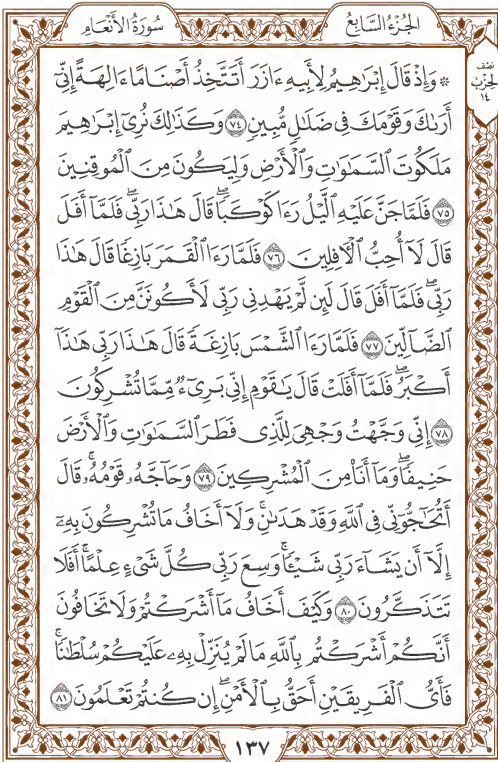 سُورَةُ الأَنْعَامِ
الجُزْءُ السَّابِعُ
نصف
الحزب
١٤
۞ وَإِذْ قَالَ إِبْرَاهِيمُ لِأَبِيهِ ءَازَرَ أَتَتَّخِذُ أَصْنَامًا ءَالِهَةً إِنِّيٓ
أَرَىٰكَ وَقَوْمَكَ فِي ضَلَٰلٍ مُّبِينٍ ٧٤ وَكَذَٰلِكَ نُرِيٓ إِبْرَٰهِيمَ
مَلَكُوتَ السَّمَٰوَٰتِ وَالْأَرْضِ وَلِيَكُونَ مِنَ الْمُوقِنِينَ
٧٥ فَلَمَّا جَنَّ عَلَيْهِ الَّيْلُ رَءَا كَوْكَبًاۖ قَالَ هَٰذَا رَبِّيۖ فَلَمَّآ أَفَلَ
قَالَ لَآ أُحِبُّ الْءَافِلِينَ ٧٦ فَلَمَّا رَءَا الْقَمَرَ بَازِغًا قَالَ هَٰذَا
رَبِّيۖ فَلَمَّآ أَفَلَ قَالَ لَئِن لَّمْ يَهْدِنِي رَبِّي لَأَكُونَنَّ مِنَ الْقَوْمِ
الضَّآلِّينَ ٧٧ فَلَمَّا رَءَا الشَّمْسَ بَازِغَةً قَالَ هَٰذَا رَبِّي هَٰذَآ
أَكْبَرُۖ فَلَمَّآ أَفَلَتْ قَالَ يَٰقَوْمِ إِنِّي بَرِيٓءٌ مِّمَّا تُشْرِكُونَ
٧٨ إِنِّي وَجَّهْتُ وَجْهِيَ لِلَّذِي فَطَرَ السَّمَٰوَٰتِ وَالْأَرْضَ
حَنِيفًاۖ وَمَآ أَنَا۠ مِنَ الْمُشْرِكِينَ ٧٩ وَحَآجَّهُۥ قَوْمُهُۥۚ قَالَ
أَتُحَٰٓجُّوٓنِّي فِي اللَّهِ وَقَدْ هَدَىٰنِۚ وَلَآ أَخَافُ مَا تُشْرِكُونَ بِهِۦٓ
إِلَّآ أَن يَشَآءَ رَبِّي شَيْـًٔاۗ وَسِعَ رَبِّي كُلَّ شَيْءٍ عِلْمًاۗ أَفَلَا
تَتَذَكَّرُونَ ٨٠ وَكَيْفَ أَخَافُ مَآ أَشْرَكْتُمْ وَلَا تَخَافُونَ
أَنَّكُمْ أَشْرَكْتُم بِاللَّهِ مَا لَمْ يُنَزِّلْ بِهِۦ عَلَيْكُمْ سُلْطَٰنًاۚ
فَأَيُّ الْفَرِيقَيْنِ أَحَقُّ بِالْأَمْنِۖ إِن كُنتُمْ تَعْلَمُونَ ٨١
١٣٧